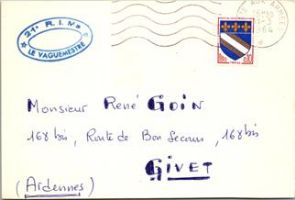 21e R. I. Ma
LE VAGUEMESTRE
AUX ARMÉES
1964
Monsieur René GOIN
168 bis, Route de Bon Secours, 168 bis
GIVET
(Ardennes)